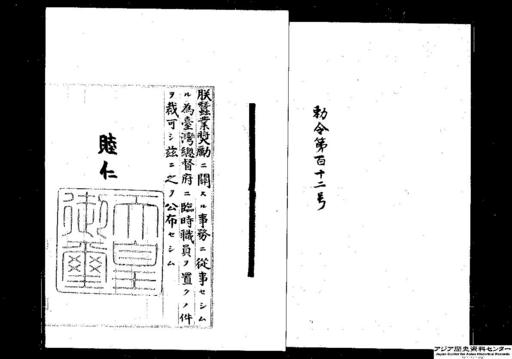 勅令第百十二号
朕蠶業奨勵ニ關スル事務ニ從事セシム
ル為臺灣總督府ニ臨時職員ヲ置クノ件
ヲ裁可シ茲ニ之ヲ公布セシム
睦仁
天皇
御璽
アジア歴史資料センター
Japan Center for Asian Historical Records